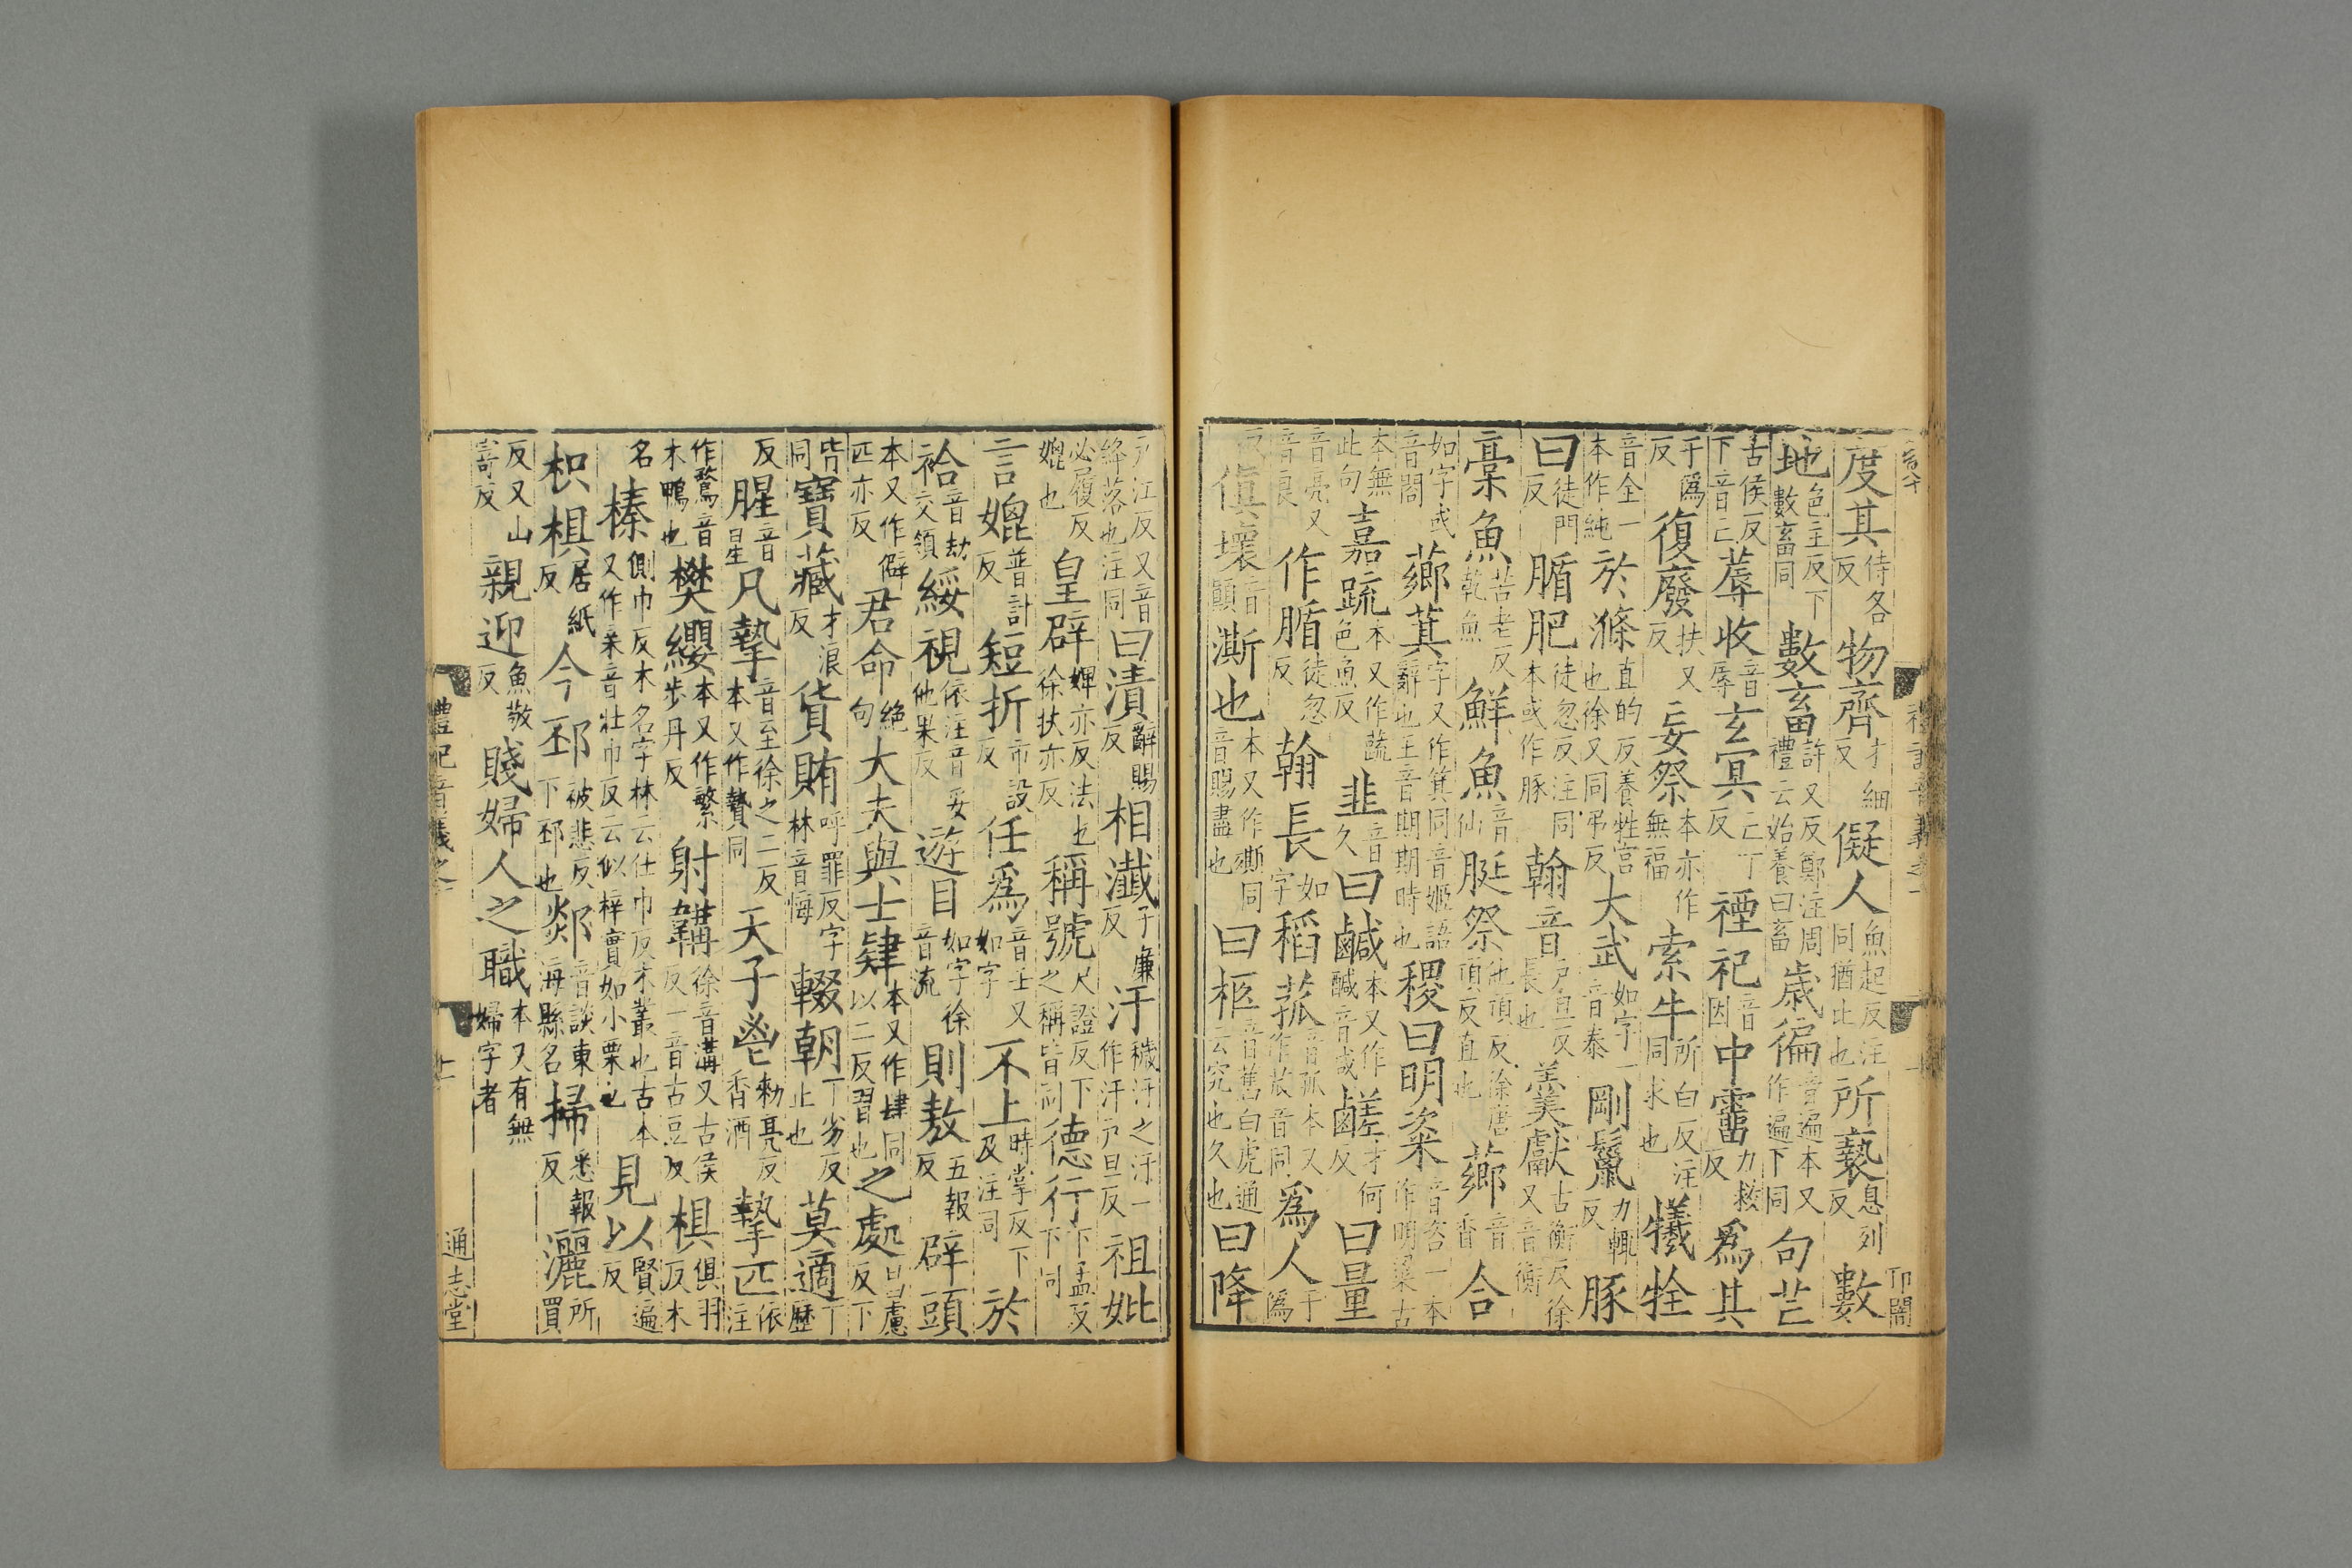 度其待各反物齊才細反儗人魚起反注同猶比也所褻息列反數
地色主反下數畜同數畜許又反鄭注周禮云始養曰畜歲徧音遍本又作遍下同句芒
古侯反下音亡蓐收音辱玄冥亡丁反禋祀音因中霤力救反爲其
于僞反復廢扶又反妄祭本亦作無福索牛所白反注同求也犧牷
音全一本作純於滌直的反養牲宮也徐又同弔反大武如字一音泰剛鬣力輒反豚
曰徒門反腯肥徒忽反注同本或作豚翰音戶旦反長也羹獻古衡反徐又音衡
槀魚苦老反乾魚鮮魚音仙脡祭他頂反徐唐頂反直也薌音香合
如字或音閤薌萁字又作箕同音姬語辭也王音期期時也稷曰明粢音咨一本作明粱古
本無此句嘉蔬本又作蔬色魚反韭音久曰鹹本又作醎音咸鹺才何反曰量
音亮又音良作腯徒忽反翰長如字稻菰音孤本又作苽音同爲人于僞
反傎壞音顛澌也本又作同音賜盡也曰柩音舊白虎通云究也久也曰降
禮記音義之一
戶江反又音絳落也注同曰漬辭賜反相瀸子廉反汙穢汙之汙一作汗戶旦反祖妣
必履反媲也皇辟婢亦反法也徐扶亦反稱號尺證反下之稱皆同德行下孟反下同
言媲普計反短折市設反任爲音壬又如字不上時掌反下及注同於
袷音劫交領綏視依注音妥他果反遊目如字徐音流則敖五報反辟頭
本又作僻匹亦反君命絕句大夫與士肄本又作肆同以二反習也之處昌慮反下
皆同寶藏才浪反貨賄呼罪反字林音悔輟朝丁劣反止也莫適丁歷
反腥音星凡摯音至徐之二反本又作贄同天子鬯勑亮反香酒摯匹依注
作鶩音木鴨也樊纓本又作繁步丹反射韝徐音溝又古侯反一音古豆反椇俱羽反木
名榛側巾反木名字林云仕巾反木叢也古本又作亲音壯巾反云似梓實如小栗也見以賢遍反
枳椇居紙反今邳被悲反下邳也郯音談東海縣名掃悉報反灑所買
反又山寄反親迎魚敬反賤婦人之職本又有無婦字者
禮記音義之一
通志堂